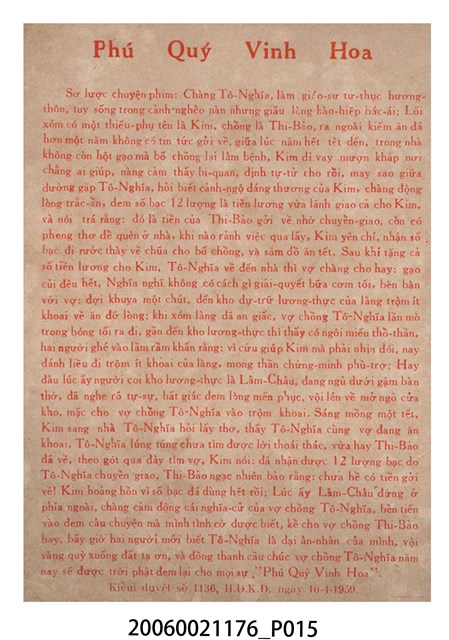 Phú Quý Vinh Hoa
Sơ lược chuyện phim: Chàng Tô-Nghĩa, làm giáo-sư tư-thục hương-
thôn, tuy sống trong cảnh-nghèo nàn nhưng giầu lòng hào-hiệp bác-ái; Lối
xóm có một thiếu-phụ tên là Kim, chồng là Thi-Bảo, ra ngoài kiếm ăn đã
hơn một năm không có tin tức gởi về, giữa lúc năm hết tết đến, trong nhà
không còn hột gạo mà bố chồng lại lâm bệnh, Kim đi vay mượn khắp nơi
chẳng ai giúp, nàng cảm thấy bi-quan, định tự-tử cho rồi, may sao giữa
đường gặp Tô-Nghĩa, hỏi biết cảnh-ngộ đáng thương của Kim, chàng động
lòng trắc-ẩn, đem số bạc 12 lượng là tiền lương vừa lãnh giao cả cho Kim,
và nói trá rằng: đó là tiền của Thi-Bảo gởi về nhờ chuyển-giao, còn có
phong thơ để quên ở nhà, khi nào rảnh việc qua lấy, Kim yên chí, nhận số
bạc đi rước thày về chữa cho bố chồng, và sắm đồ ăn tết. Sau khi tặng cả
số tiền lương cho Kim, Tô-Nghĩa về đến nhà thì vợ chàng cho hay: gạo
củi đều hết, Nghĩa nghĩ không có cách gì giải-quyết bữa cơm tối, bèn bàn
với vợ: đợi khuya một chút, đến kho dự-trữ lương-thực của làng trộm ít
khoai về ăn đỡ lòng: khi xóm làng đã an giấc, vợ chồng Tô-Nghĩa lần mò
trong bóng tối ra đi, gần đến kho lương-thực thì thấy có ngôi miếu thổ-thần,
hai người ghé vào lâm râm khấn rằng: vì cứu giúp Kim mà phải nhịn đói, nay
đánh liều đi trộm ít khoai của làng, mong thần chứng-minh phù-trợ: Hay
đâu lúc ấy người coi kho lương-thực là Lâm-Châu, đang ngủ dưới gậm bàn
thờ, đã nghe rõ tự-sự, bất giác đem lòng mến phục, vội lén về mở ngỏ cửa
kho, mặc cho vợ chồng Tô-Nghĩa vào trộm khoai. Sáng mồng một tết,
Kim sang nhà Tô-Nghĩa hỏi lấy thơ, thấy Tô-Nghĩa cùng vợ đang ăn
khoai, Tô-Nghĩa lúng túng chưa tìm được lời thoái thác, vừa hay Thi-Bảo
đã về, theo gót qua đây tìm vợ, Kim nói: đã nhận được 12 lượng bạc do
Tô-Nghĩa chuyển giao, Thi-Bảo ngạc nhiên bảo rằng: chưa hề có tiền gởi
về! Kim hoảng hồn vì số bạc đã dùng hết rồi; Lúc ấy Lâm-Châu đứng ở
phía ngoài, chàng cảm động cái nghĩa-cử của vợ chồng Tô-Nghĩa, bèn tiến
vào đem câu chuyện mà mình tình cờ được biết, kể cho vợ chồng Thi-Bảo
hay, bấy giờ hai người mới biết Tô-Nghĩa là đại ân-nhân của mình, vội
vàng quỳ xuống đất tạ ơn, và đồng thanh cầu chúc vợ chồng Tô-Nghĩa năm
nay sẽ được trời phật đem lại cho mọi sự "Phú Quý Vinh Hoa".
Kiểm duyệt số 1136, H.D.K.D. ngày 10-1-1959.
20060021176_P015